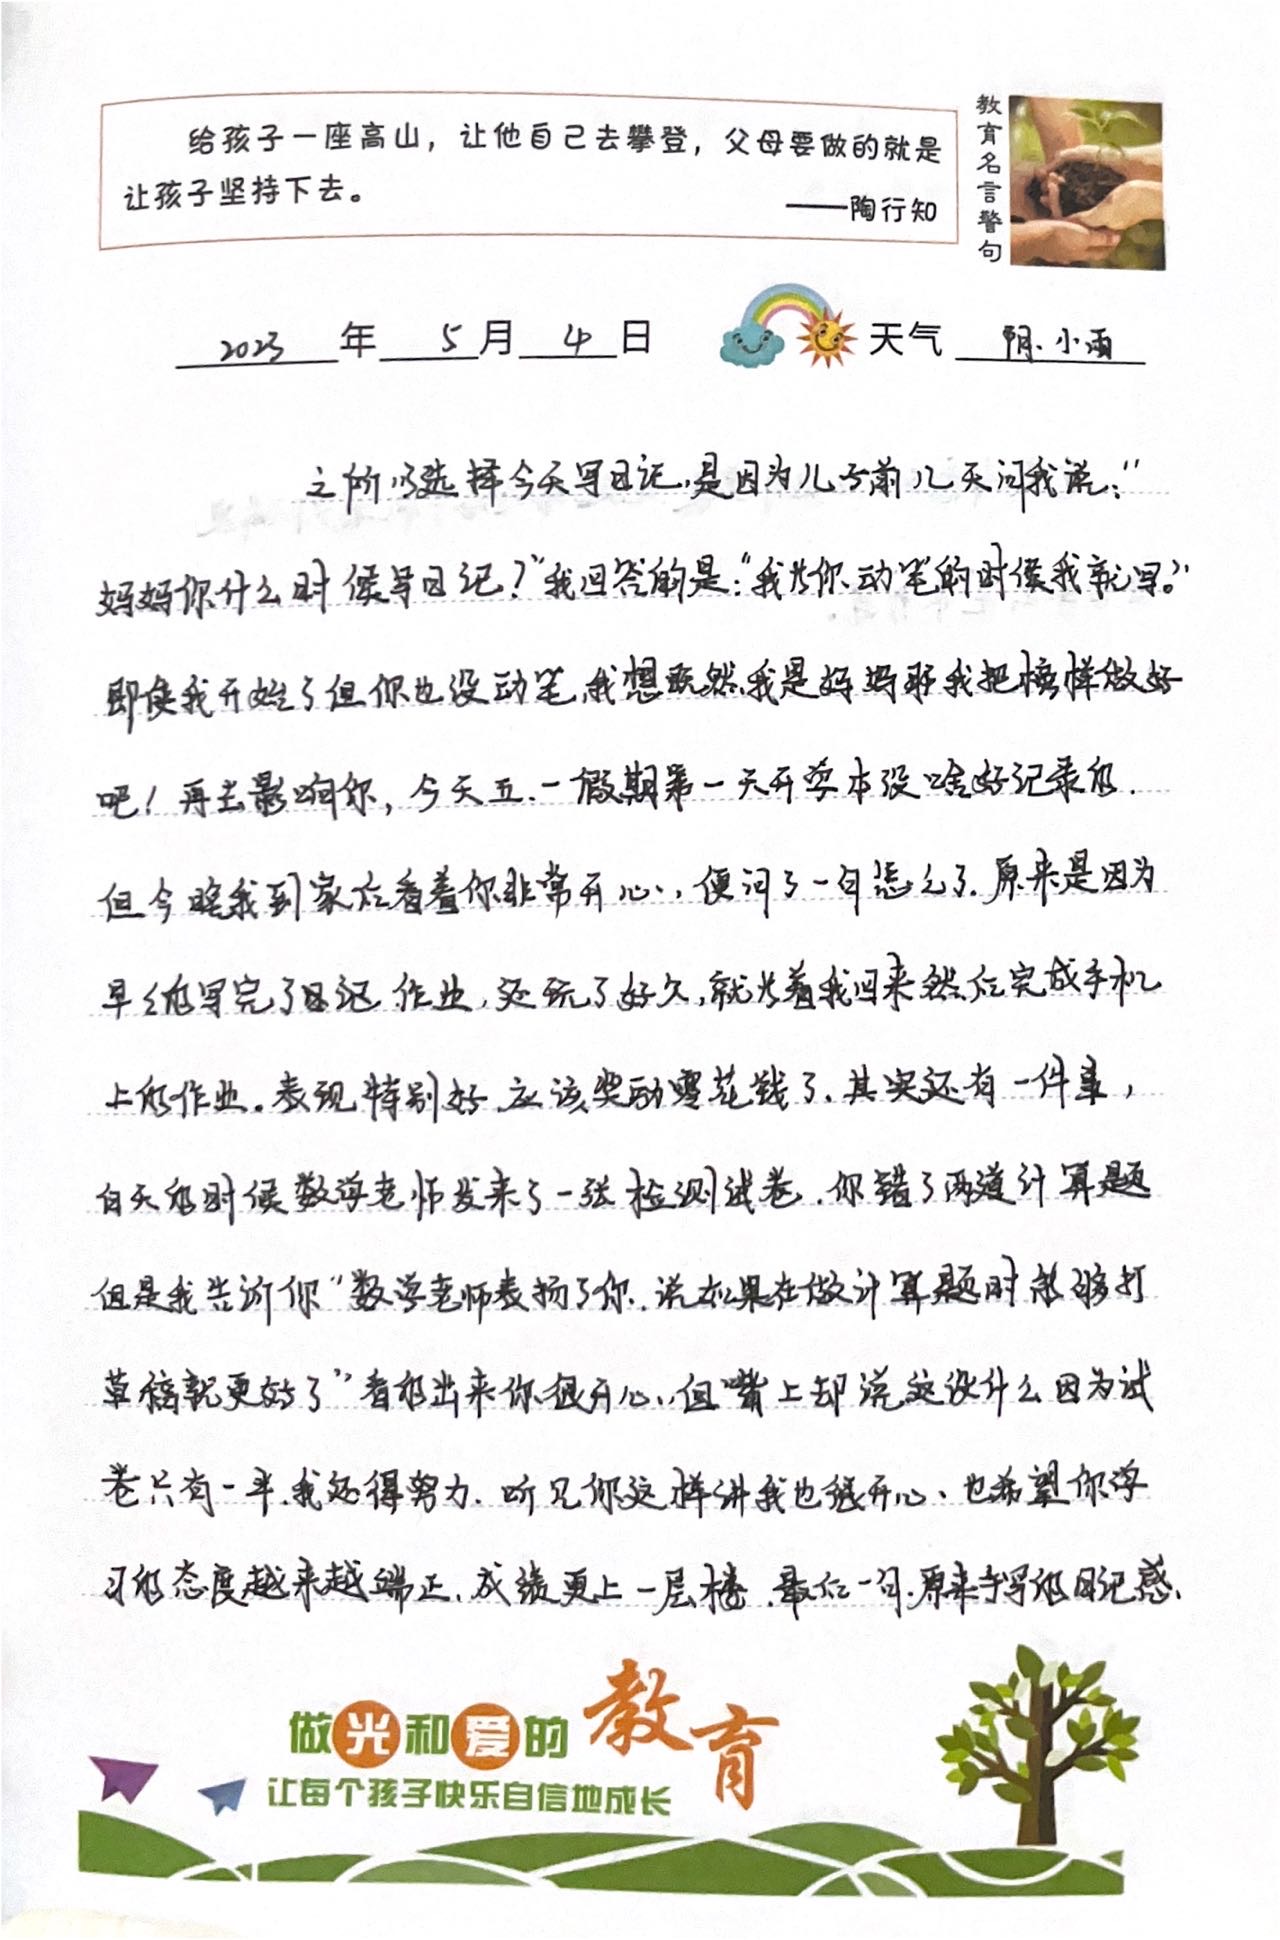 给孩子一座高山，让他自己去攀登，父母要做的就是
让孩子坚持下去。
——陶行知
教育名言警句
2023年5月4日 天气 阴、小雨
之所以选择今天写日记，是因为儿子前几天问我说：“
妈妈你什么时候写日记？”我回答的是：“我为你动笔的时候我就写。”
即使我开始了但你也没动笔，我想既然我是妈妈那我把榜样做好
吧！再去影响你，今天五.一假期第一天开学本没啥好记录的.
但今晚我到家后看着你非常开心，便问了一句怎么了.原来是因为
早早的写完了日记作业，还玩了好久，就为着我回来然后完成手机
上的作业。表现特别好，应该奖励零花钱了.其实还有一件事，
白天的时候数学老师发来了一张检测试卷.你错了两道计算题
但是我告诉你“数学老师表扬了你.说如果在做计算题时能够打
草稿就更好了”看的出来你很开心，但嘴上却说这没什么因为试
卷只有一半.我还得努力.听见你这样讲我也很开心、也希望你学
习的态度越来越端正、成绩更上一层楼.最后一句.原来手写的日记感、
做光和爱的教育
让每个孩子快乐自信地成长